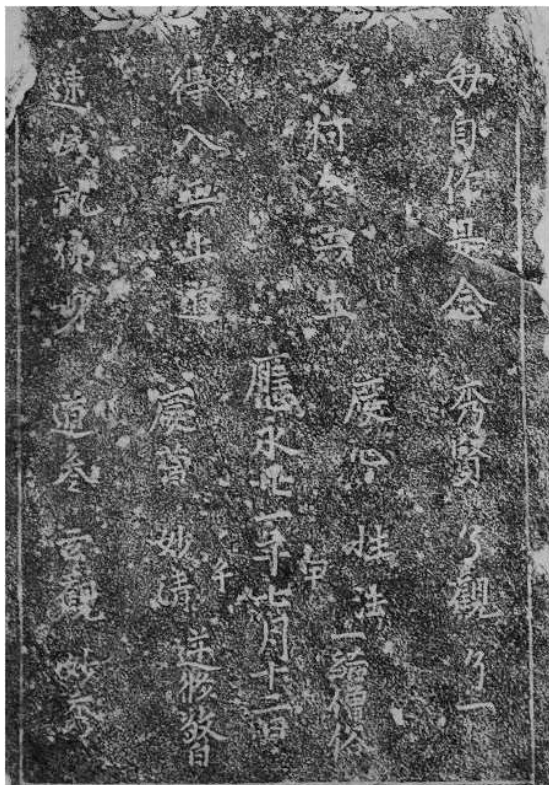 毎自作是念 秀賢 了觀 了一
以何令衆生 慶心 性法 一結僧俗
應永廿一年甲午七月十二日
得入無上道 慶音 妙清 逆修敬白
速成就佛身 道参 玄觀 妙秀